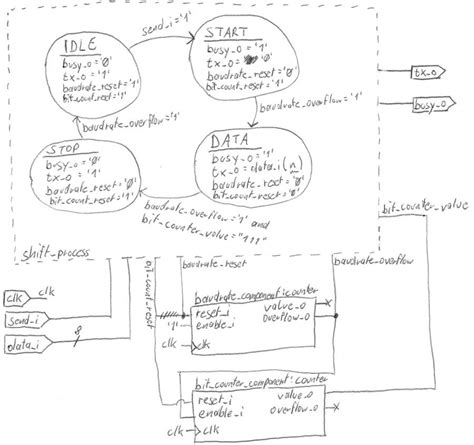 send_i='1'
IDLE
busy_o='0'
tx_o='1'
baudrate_reset='1'
bit_count_reset='1'
START
busy_o='1'
tx_o='0'
baudrate_reset='0'
bit_count_reset='1'
baudrate_overflow='1'
baudrate_overflow='1'
STOP
busy_o='0'
tx_o='1'
baudrate_reset='0'
bit_count_reset='1'
DATA
busy_o='1'
tx_o=data_i(n)
baudrate_reset='0'
bit_count_reset='0'
baudrate_overflow='1' and
bit_counter_value="111"
tx_o
busy_o
bit_counter_value
shift_process
baudrate_reset
baudrate_overflow
bit_count_reset
clk
clk
send_i
data_i
8
baudrate_component:counter
'1'
reset_i
enable_i
value_o
overflow_o
clk
clk
bit_counter_component:counter
reset_i
enable_i
value_o
overflow_o
clk
clk